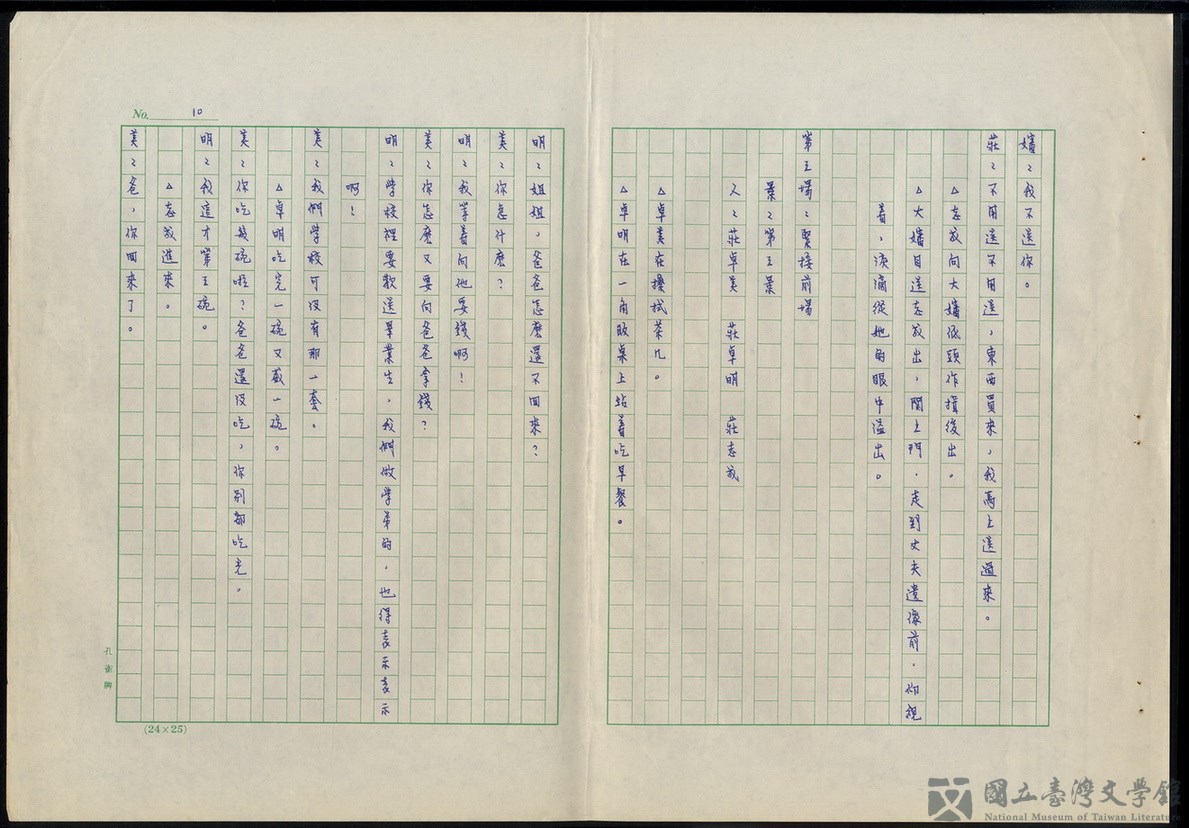 嬸：我不送你。
莊：不用送不用送，東西買來，我馬上送過來。
△志成向大嬸低頭作揖後出。
△大嬸目送志成出，關上門．走到丈夫遺像前．仰視
着，淚滴從她的眼中溢出。
第五場：緊接前場
景：第五景
人：莊卓美 莊卓明 莊志成
△卓美在擦拭茶几。
△卓明在一角飯桌上站着吃早餐。
明：姐姐，爸爸怎麼還不回來？
美：你急什麼？
明：我等着向他要錢啊！
美：你怎麼又要向爸爸拿錢？
明：學校裡要歡送畢業生，我們做學弟的，也得表示表示
啊！
美：我們學校可沒有那一套。
△卓明吃完一碗又盛一碗。
美：你吃幾碗啦？爸爸還沒吃，你別都吃光。
明：我這才第三碗。
△志成進來。
美：爸，你回來了。
No. 10
(24×25)
孔雀牌
國立臺灣文學館
National Museum of Taiwan Literature